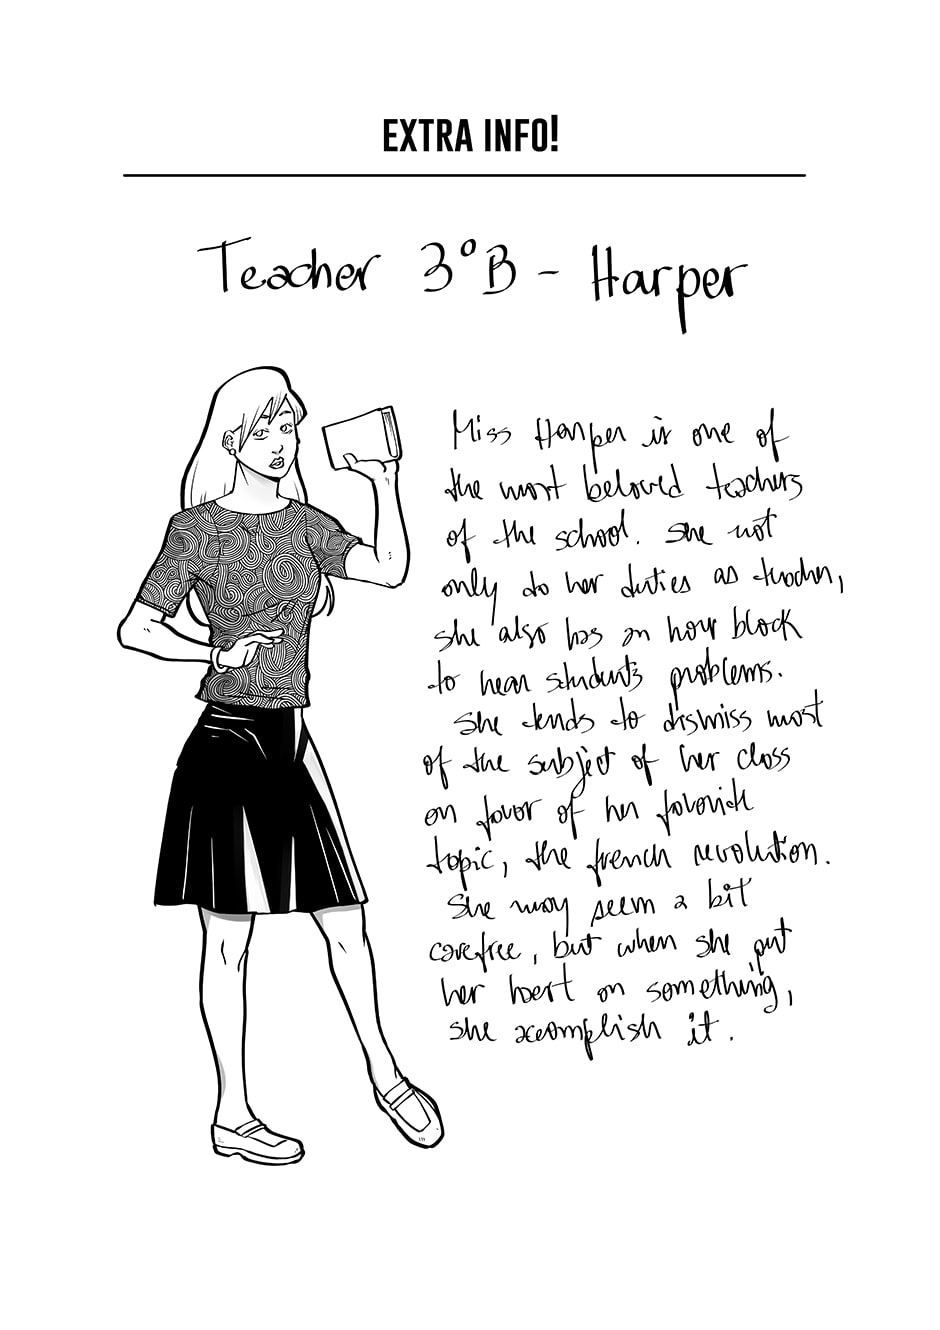 EXTRA INFO!
Teacher 3°B - Harper
Miss Harper is one of
the most beloved teachers
of the school. She not
only do her duties as teacher,
she also has an hour block
to hear students problems.
She tends to dismiss most
of the subject of her class
on favor of her favorite
topic, the french revolution.
She may seem a bit
carefree, but when she put
her heart on something,
she accomplish it.